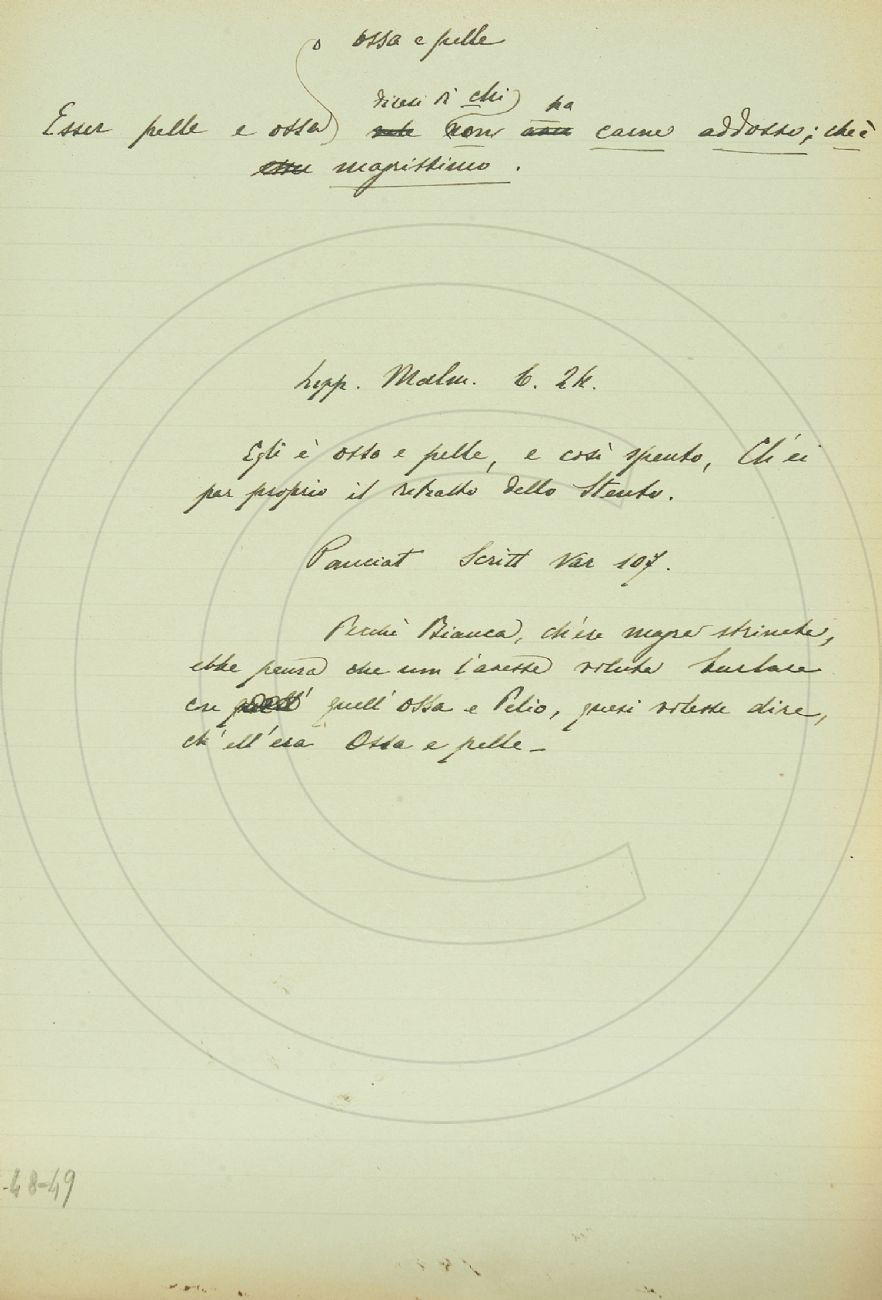 o ossa e pelle
dicesi di chi ha
Esser pelle e ossa) non carne addosso; che è
magrissimo.
Lipp. Malm. 6. 24.
Egli è ossa e pelle, e così spento, Ch'ei
par proprio il ritratto dello Stento.
Panciat Scritt Var 107.
Perchè Bianca, ch'era magra strinata,
ebbe paura che um l'avesse voluta burlare
con quell' ossa e Pelio, quasi volesse dire,
ch'ell'era Ossa e pelle –
-48-49